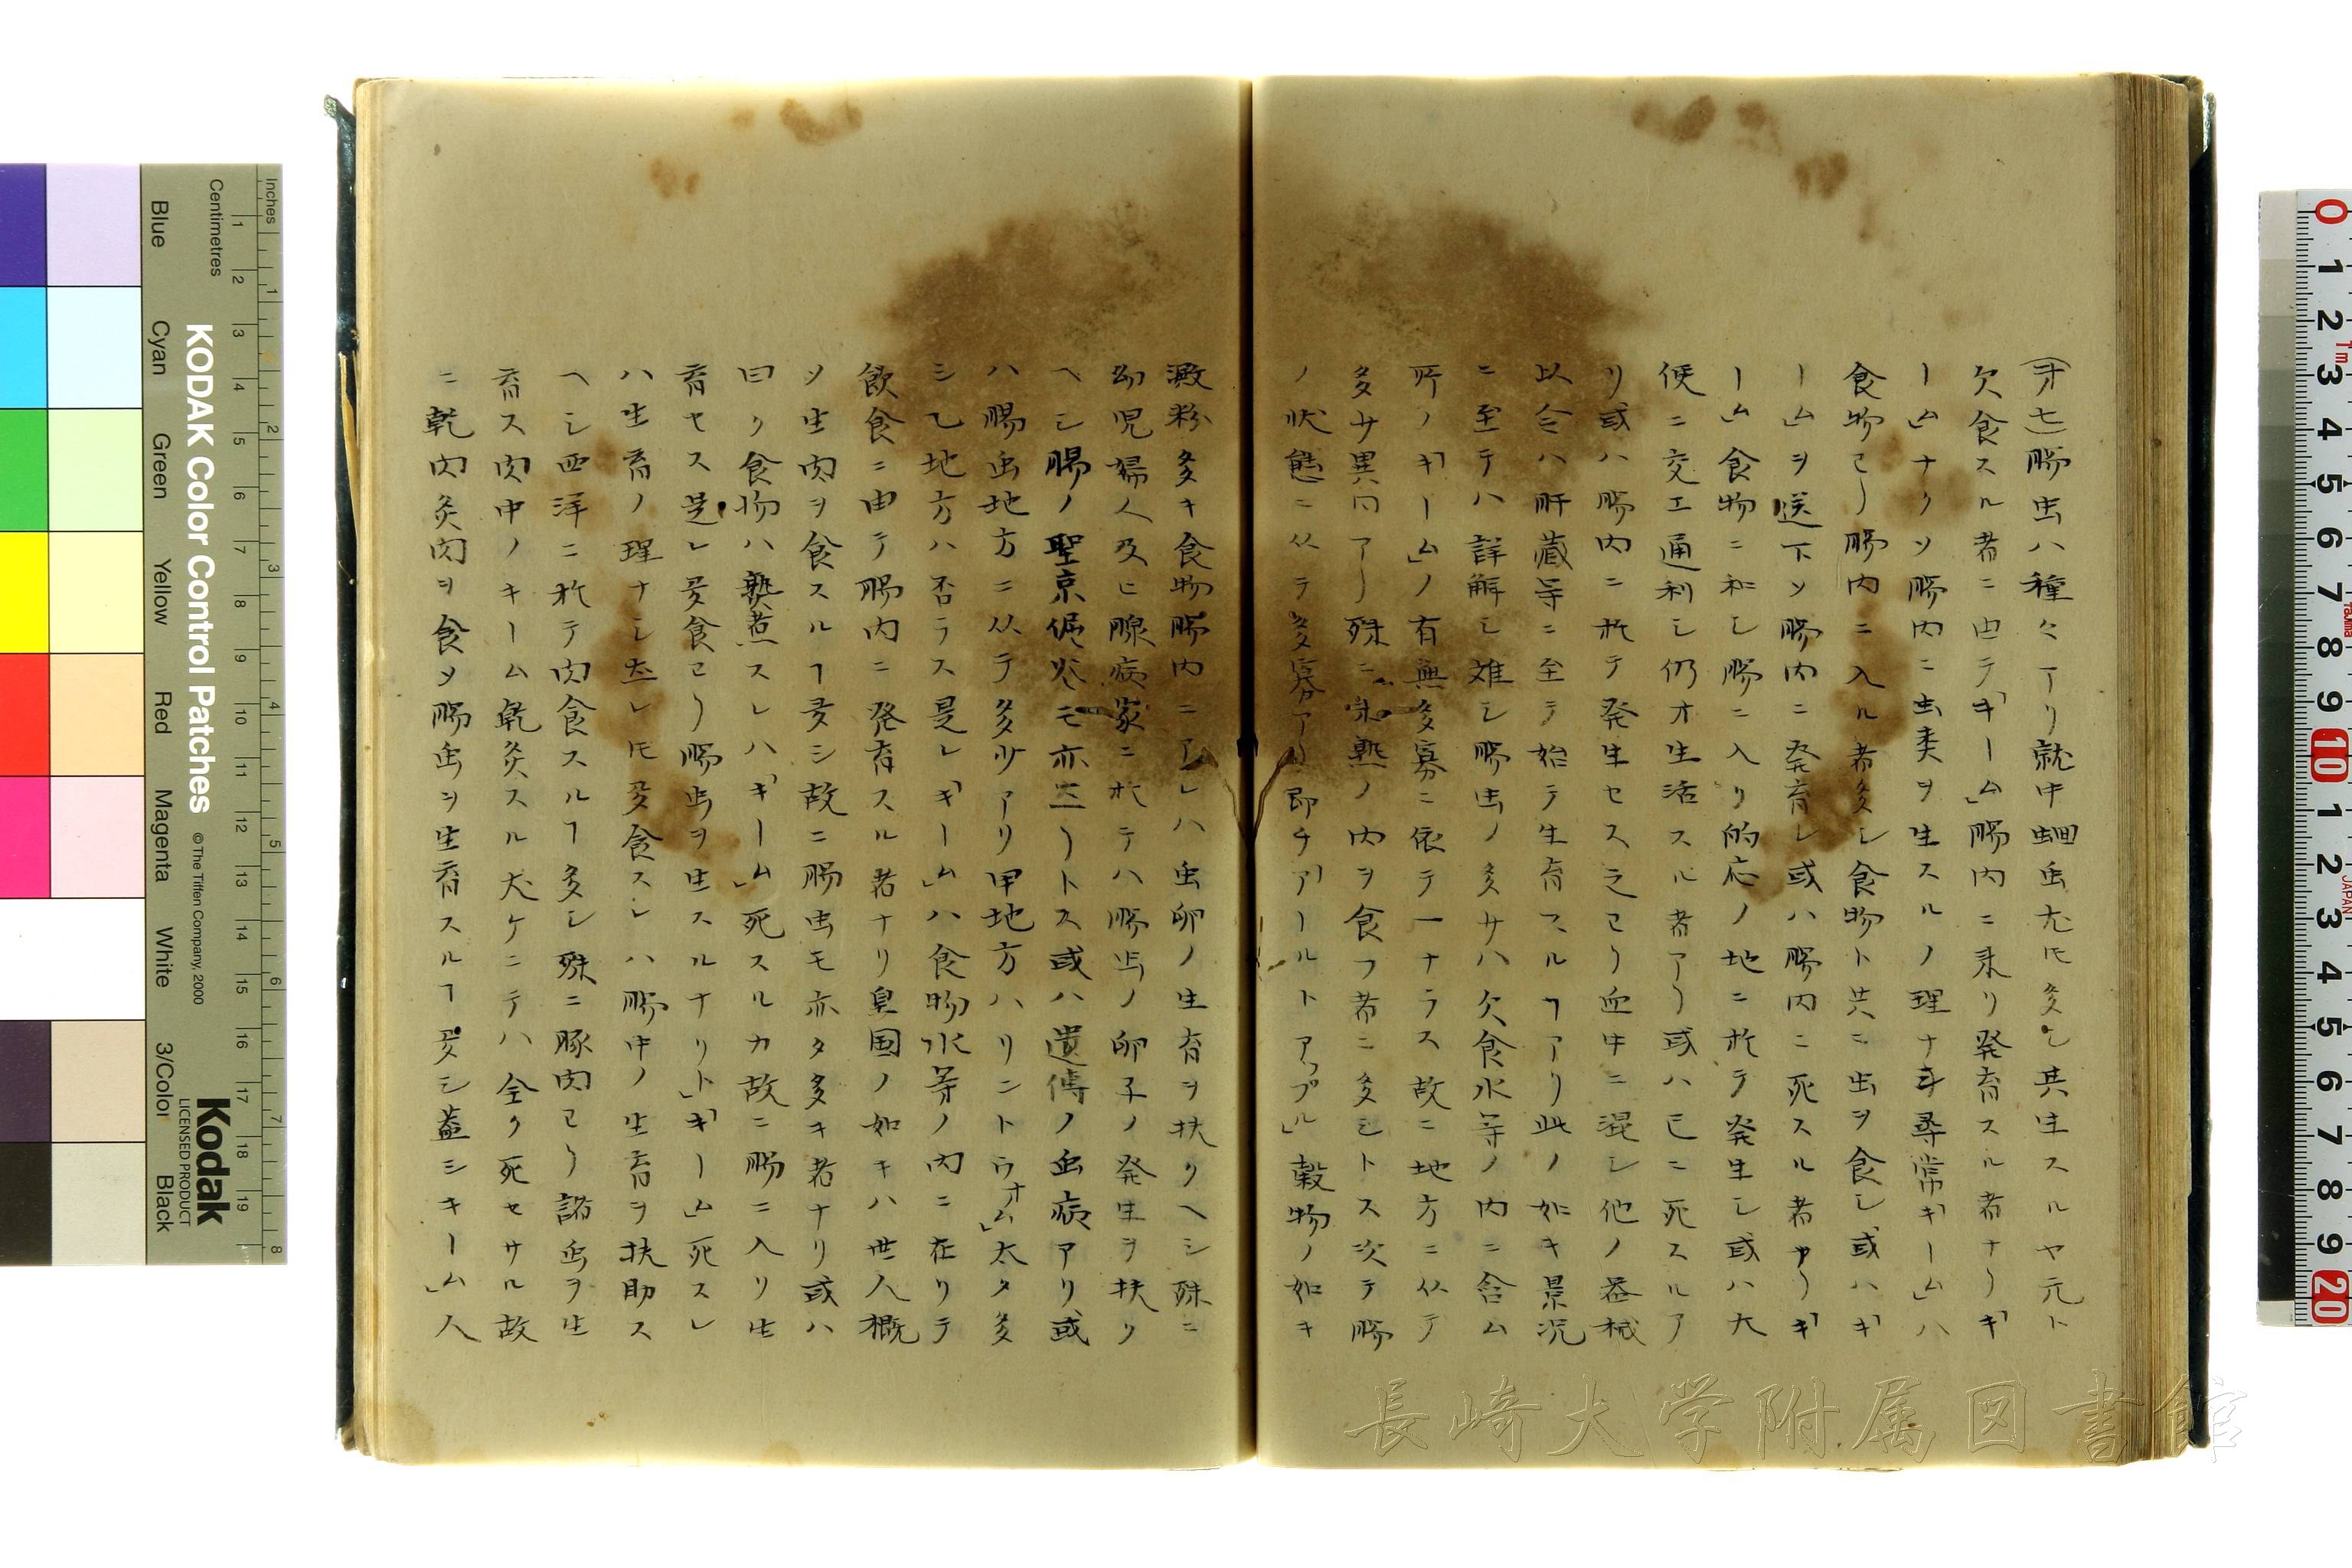 (才七)腸虫ハ種々アリ就中蛔虫尤𪜈多シ其生スルヤ元ト
欠食スル者ニ由テ「ギーム」腸内ニ来リ発育スル者ナリ「ギ
ーム」ナクソ腸内ニ虫类ヲ生スルノ理ナキ尋常「ギーム」ハ
食物ヨリ腸内ニ入ル者多シ食物ト共ニ虫ヲ食シ或ハ「ギ
ーム」ヲ送下ソ腸内ニ発育シ或ハ腸内ニ死スル者アリ「ギ
ーム」食物ニ和シ腸ニ入リ的応ノ地ニ於テ発生シ或ハ大
便ニ交エ通利シ仍オ生活スル者アリ或ハ已ニ死スルア
リ或ハ腸内ニ於テ発生セス之ヨリ血中ニ混シ他ノ器械
以合ハ肝蔵等ニ至テ始テ生育スルヿアリ此ノ如キ景况
ニ至テハ詳解シ难シ腸虫ノ多サハ欠食水等ノ内ニ含ム
所ノ「ギーム」ノ有無多寡ニ依テ一ナラス故ニ地方ニ从テ
多サ異同アリ殊ニ未熟ノ肉ヲ食フ者ニ多シトス次テ腸
ノ状態ニ从テ多寡アリ即チ「アールトアップル」穀物ノ如キ
澱粉多キ食物腸内ニアレハ虫卵ノ生育ヲ扶クヘシ殊ニ
幼児婦人及ヒ腺病家ニ於テハ腸虫ノ卵子ノ発生ヲ扶ク
ヘシ腸ノ聖京㑨炎モ亦然リトス或ハ遺傳ノ虫病アリ或
ハ腸虫地方ニ从テ多少アリ甲地方ハリントウオム」太タ多
シ乙地方ハ否ラス是レ「ギーム」ハ食物水等ノ内ニ在リテ
飲食ニ由テ腸内ニ発育スル者ナリ皇国ノ如キハ世人概
ソ生肉ヲ食スルヿ多シ故ニ腸虫モ亦タ多キ者ナリ或ハ
曰ク食物ハ熟煮スレハ「ギーム」死スルカ故ニ腸ニ入リ生
育セス是レ多食ヨリ腸虫ヲ生スルナリト」「ギーム」死スレ
ハ生育ノ理ナシ然レ𪜈多食スレハ腸中ノ生育ヲ扶助ス
ヘシ西洋ニ於テ肉食スルヿ多シ殊ニ豚肉ヨリ諸虫ヲ生
育ス肉中ノキーム乾炙スル丈ケニテハ全ク死セサル故
ニ乾肉炙肉ヲ食ソ腸虫ヲ生育スルヿ多シ蓋シキーム」人
Inches
Centimetres
KODAK Color Control Patches
© The Tiffen Company, 2000
Kodak
LICENSED PRODUCT
Blue
Cyan
Green
Yellow
Red
Magenta
White
3/Color
Black
長崎大学附属図書館